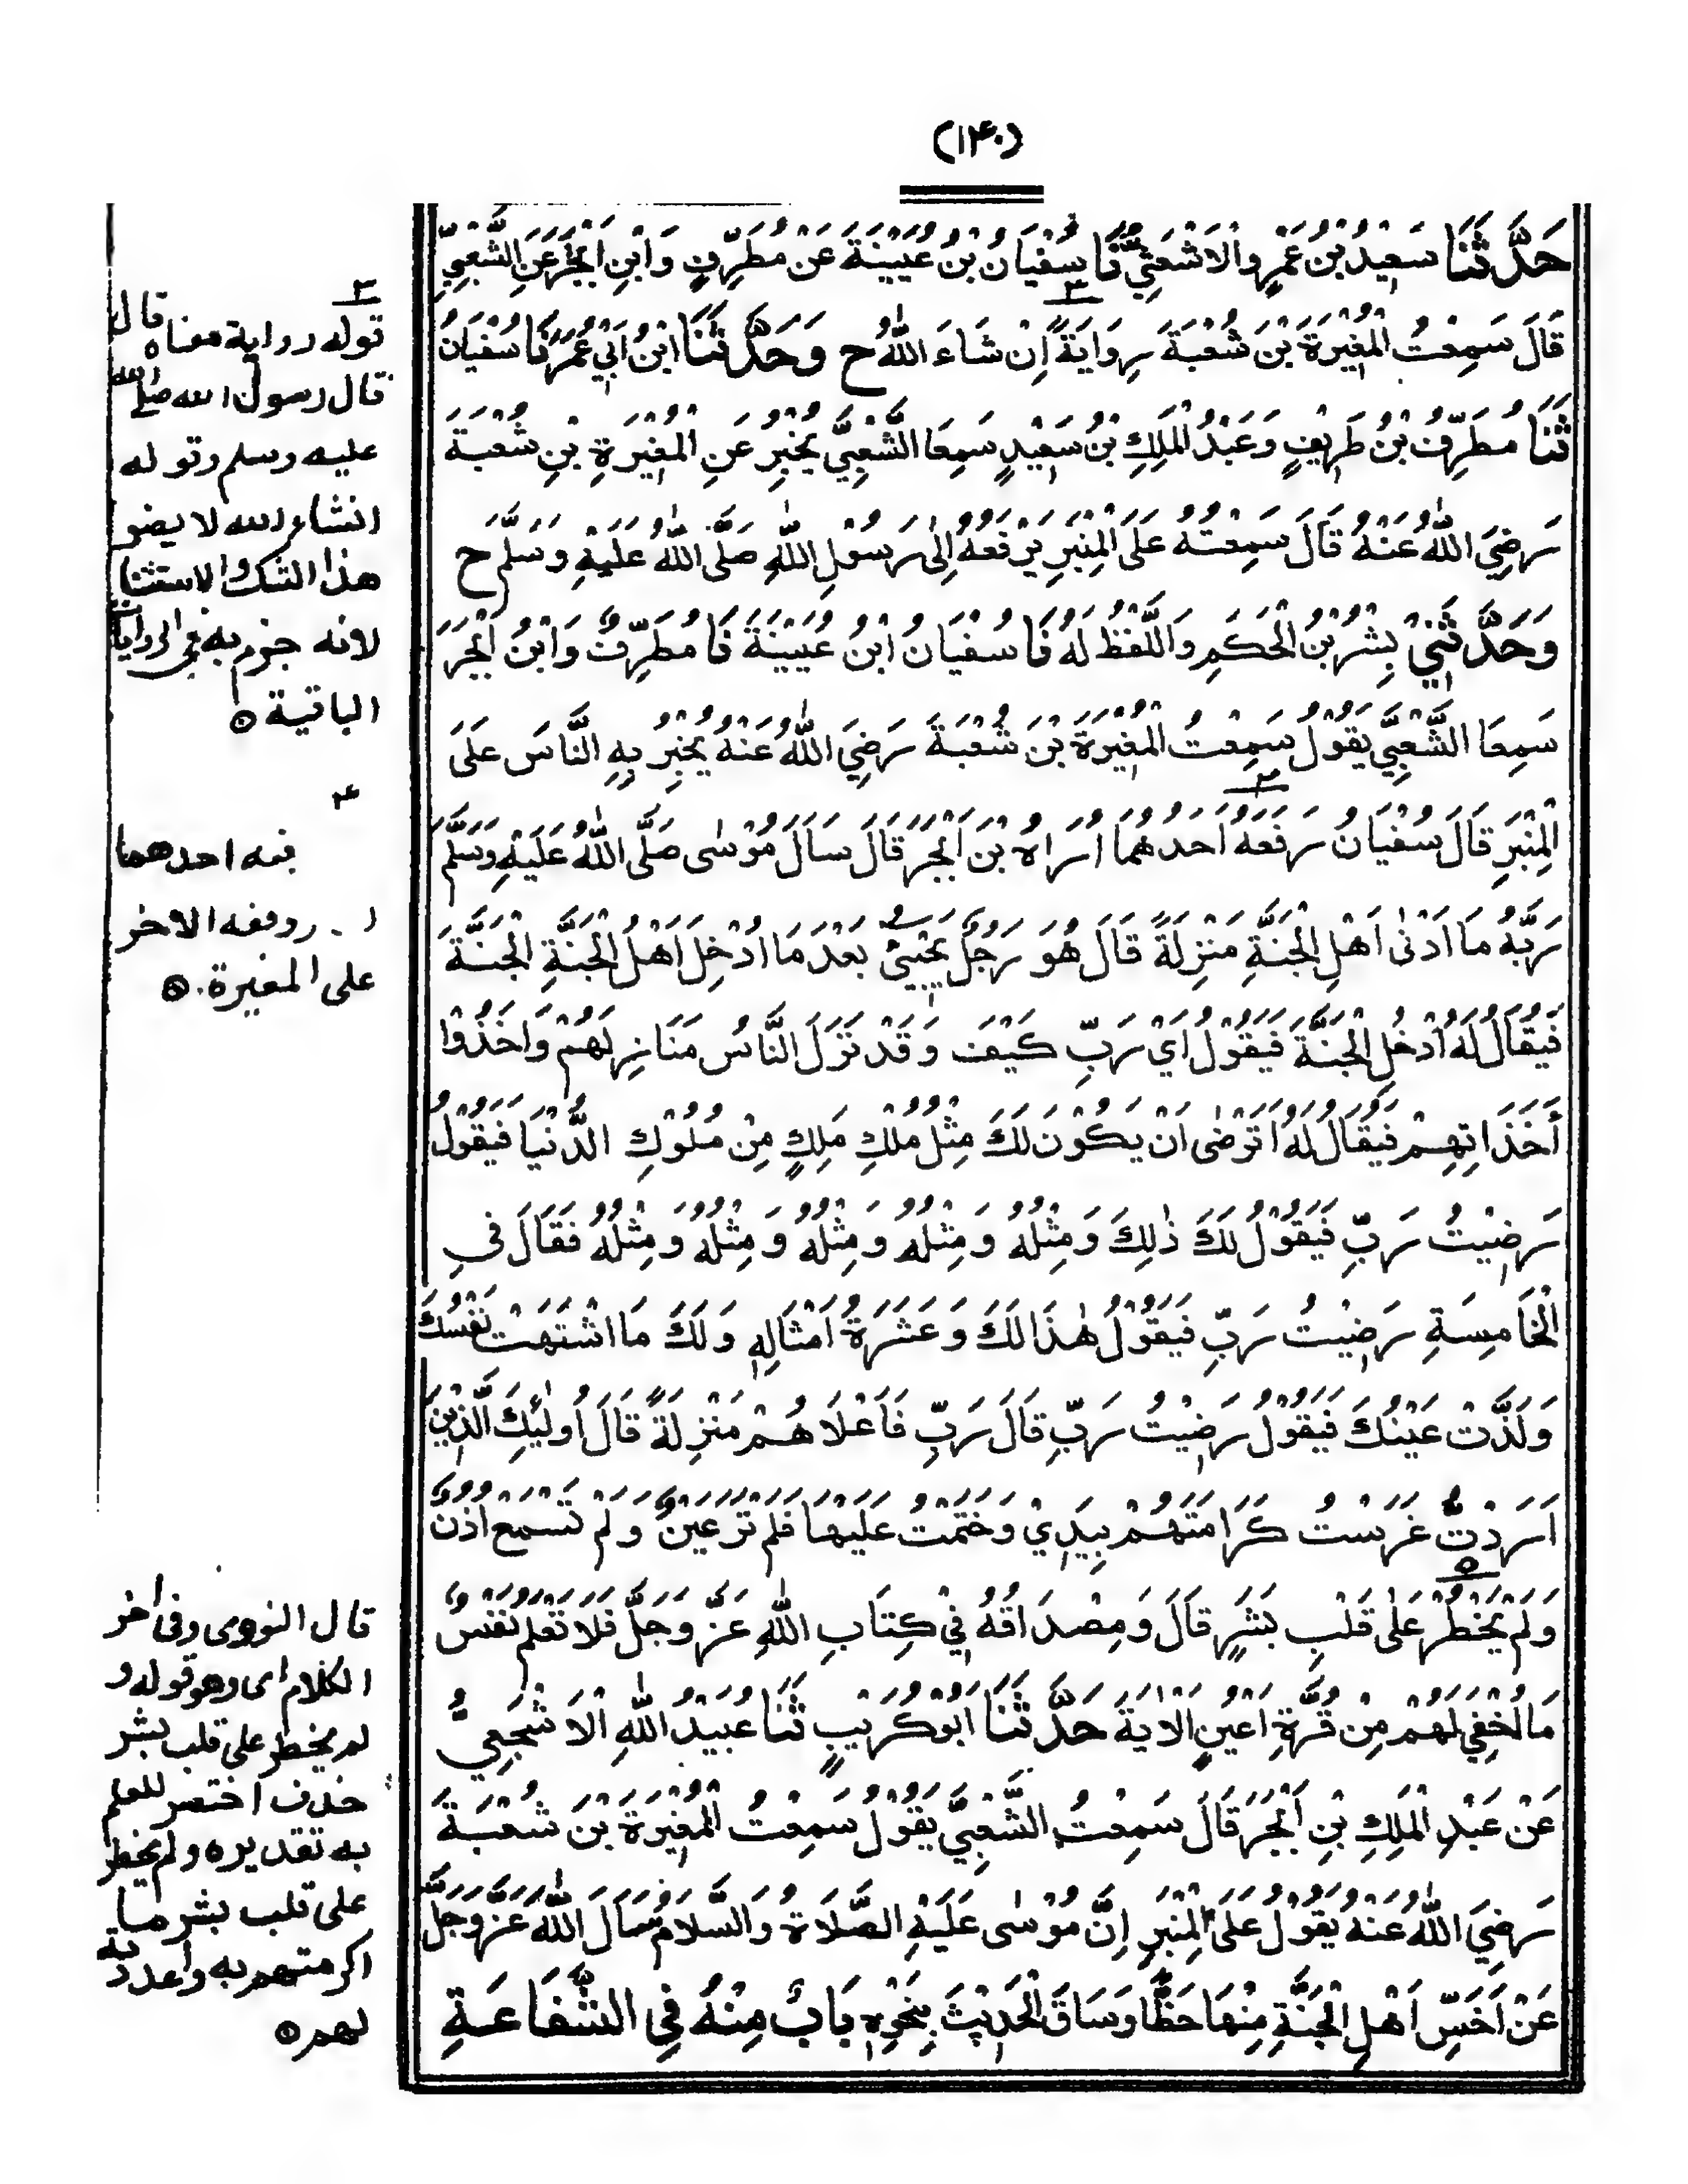 (۱۴۰)
حَدَّثَنَا سَعِيْدُ بْنُ عَمْرٍو الْاَشْعَثِيُّ نَا سُفْيَانُ بْنُ عُيَيْنَةَ عَنْ مُطَرِّفٍ وَابْنِ اَبْجَرَ عَنِ الشَّعْبِيِّ
قَالَ سَمِعْتُ الْمُغِيْرَةَ بْنَ شُعْبَةَ رِوَايَةً اِنْ شَاءَ اللّٰهُ ح وَحَدَّثَنَا ابْنُ اَبِيْ عُمَرَ نَا سُفْيَانُ
ثَنَا مُطَرِّفُ بْنُ طَرِيْفٍ وَعَبْدُ الْمَلِكِ بْنُ سَعِيْدٍ سَمِعَا الشَّعْبِيَّ يُخْبِرُ عَنِ الْمُغِيْرَةِ بْنِ شُعْبَةَ
رَضِيَ اللّٰهُ عَنْهُ قَالَ سَمِعْتُهُ عَلَى الْمِنْبَرِ يَرْفَعُهُ اِلٰى رَسُوْلِ اللّٰهِ صَلَّى اللّٰهُ عَلَيْهِ وَسَلَّمَ ح
وَحَدَّثَنِيْ بِشْرُ بْنُ الْحَكَمِ وَاللَّفْظُ لَهُ نَا سُفْيَانُ ابْنُ عُيَيْنَةَ نَا مُطَرِّفٌ وَابْنُ اَبْجَرَ
سَمِعَا الشَّعْبِيَّ يَقُوْلُ سَمِعْتُ الْمُغِيْرَةَ بْنَ شُعْبَةَ رَضِيَ اللّٰهُ عَنْهُ يُخْبِرُ بِهِ النَّاسَ عَلَى
الْمِنْبَرِ قَالَ سُفْيَانُ رَفَعَهُ اَحَدُهُمَا اُرَاهُ بْنَ اَبْجَرَ قَالَ سَاَلَ مُوْسٰى صَلَّى اللّٰهُ عَلَيْهِ وَسَلَّمَ
رَبَّهُ مَا اَدْنٰى اَهْلِ الْجَنَّةِ مَنْزِلَةً قَالَ هُوَ رَجُلٌ يَجِيْئُ بَعْدَ مَا اُدْخِلَ اَهْلُ الْجَنَّةِ الْجَنَّةَ
فَيُقَالُ لَهُ اُدْخُلِ الْجَنَّةَ فَيَقُوْلُ اَيْ رَبِّ كَيْفَ وَقَدْ نَزَلَ النَّاسُ مَنَازِلَهُمْ وَاَخَذُوْا
أَخَذَاتِهِمْ فَيُقَالُ لَهُ اَتَرْضٰى اَنْ يَكُوْنَ لَكَ مِثْلُ مُلْكِ مَلِكٍ مِنْ مُلُوْكِ الدُّنْيَا فَيَقُوْلُ
رَضِيْتُ رَبِّ فَيَقُوْلُ لَكَ ذٰلِكَ وَمِثْلُهُ وَمِثْلُهُ وَمِثْلُهُ وَمِثْلُهُ وَمِثْلُهُ فَقَالَ فِي
الْخَامِسَةِ رَضِيْتُ رَبِّ فَيَقُوْلُ هٰذَا لَكَ وَعَشَرَةُ اَمْثَالِهِ وَلَكَ مَا اشْتَهَتْ نَفْسُكَ
وَلَذَّتْ عَيْنُكَ فَيَقُوْلُ رَضِيْتُ رَبِّ قَالَ رَبِّ فَاَعْلَاهُمْ مَنْزِلَةً قَالَ اُولٰئِكَ الَّذِيْنَ
اَرَدْتُّ غَرَسْتُ كَرَامَتَهُمْ بِيَدِيْ وَخَتَمْتُ عَلَيْهَا فَلَمْ تَرَ عَيْنٌ وَلَمْ تَسْمَعْ اُذُنٌ
وَلَمْ يَخْطُرْ عَلٰى قَلْبِ بَشَرٍ قَالَ وَمِصْدَاقُهُ فِيْ كِتَابِ اللّٰهِ عَزَّ وَجَلَّ فَلَا تَعْلَمُ نَفْسٌ
مَا اُخْفِيَ لَهُمْ مِنْ قُرَّةِ اَعْيُنٍ الْاٰيَةَ حَدَّثَنَا اَبُوْ كُرَيْبٍ ثَنَا عُبَيْدُ اللّٰهِ الْاَشْجَعِيُّ
عَنْ عَبْدِ الْمَلِكِ بْنِ اَبْجَرَ قَالَ سَمِعْتُ الشَّعْبِيَّ يَقُوْلُ سَمِعْتُ الْمُغِيْرَةَ بْنَ شُعْبَةَ
رَضِيَ اللّٰهُ عَنْهُ يَقُوْلُ عَلَى الْمِنْبَرِ اِنَّ مُوْسٰى عَلَيْهِ الصَّلَاةُ وَالسَّلَامُ سَاَلَ اللّٰهَ عَزَّ وَجَلَّ
عَنْ اَخَسِّ اَهْلِ الْجَنَّةِ مِنْهَا حَظًّا وَسَاقَ الْحَدِيْثَ بِنَحْوِهِ بَابٌ مِنْهُ فِي الشَّفَاعَةِ
۳
قوله رواية معناه قال
قال رسول الله صلى الله
عليه وسلم وقوله
انشاء الله لا يضر
هذا الشك والاستثنا
لانه جزم به في الروايات
الباقية ۵
۴
احدهما
ا - ووقفه الاخر
على المغيرة. ۵
قال النووى وفى اخر
الكلام اى وهو قوله و
لم يخطر على قلب بشر
حذف اختصر للعلم
به تقديره ولم يخطر
على قلب بشر ما
اكرمتهم به واعددته
لهم ۵